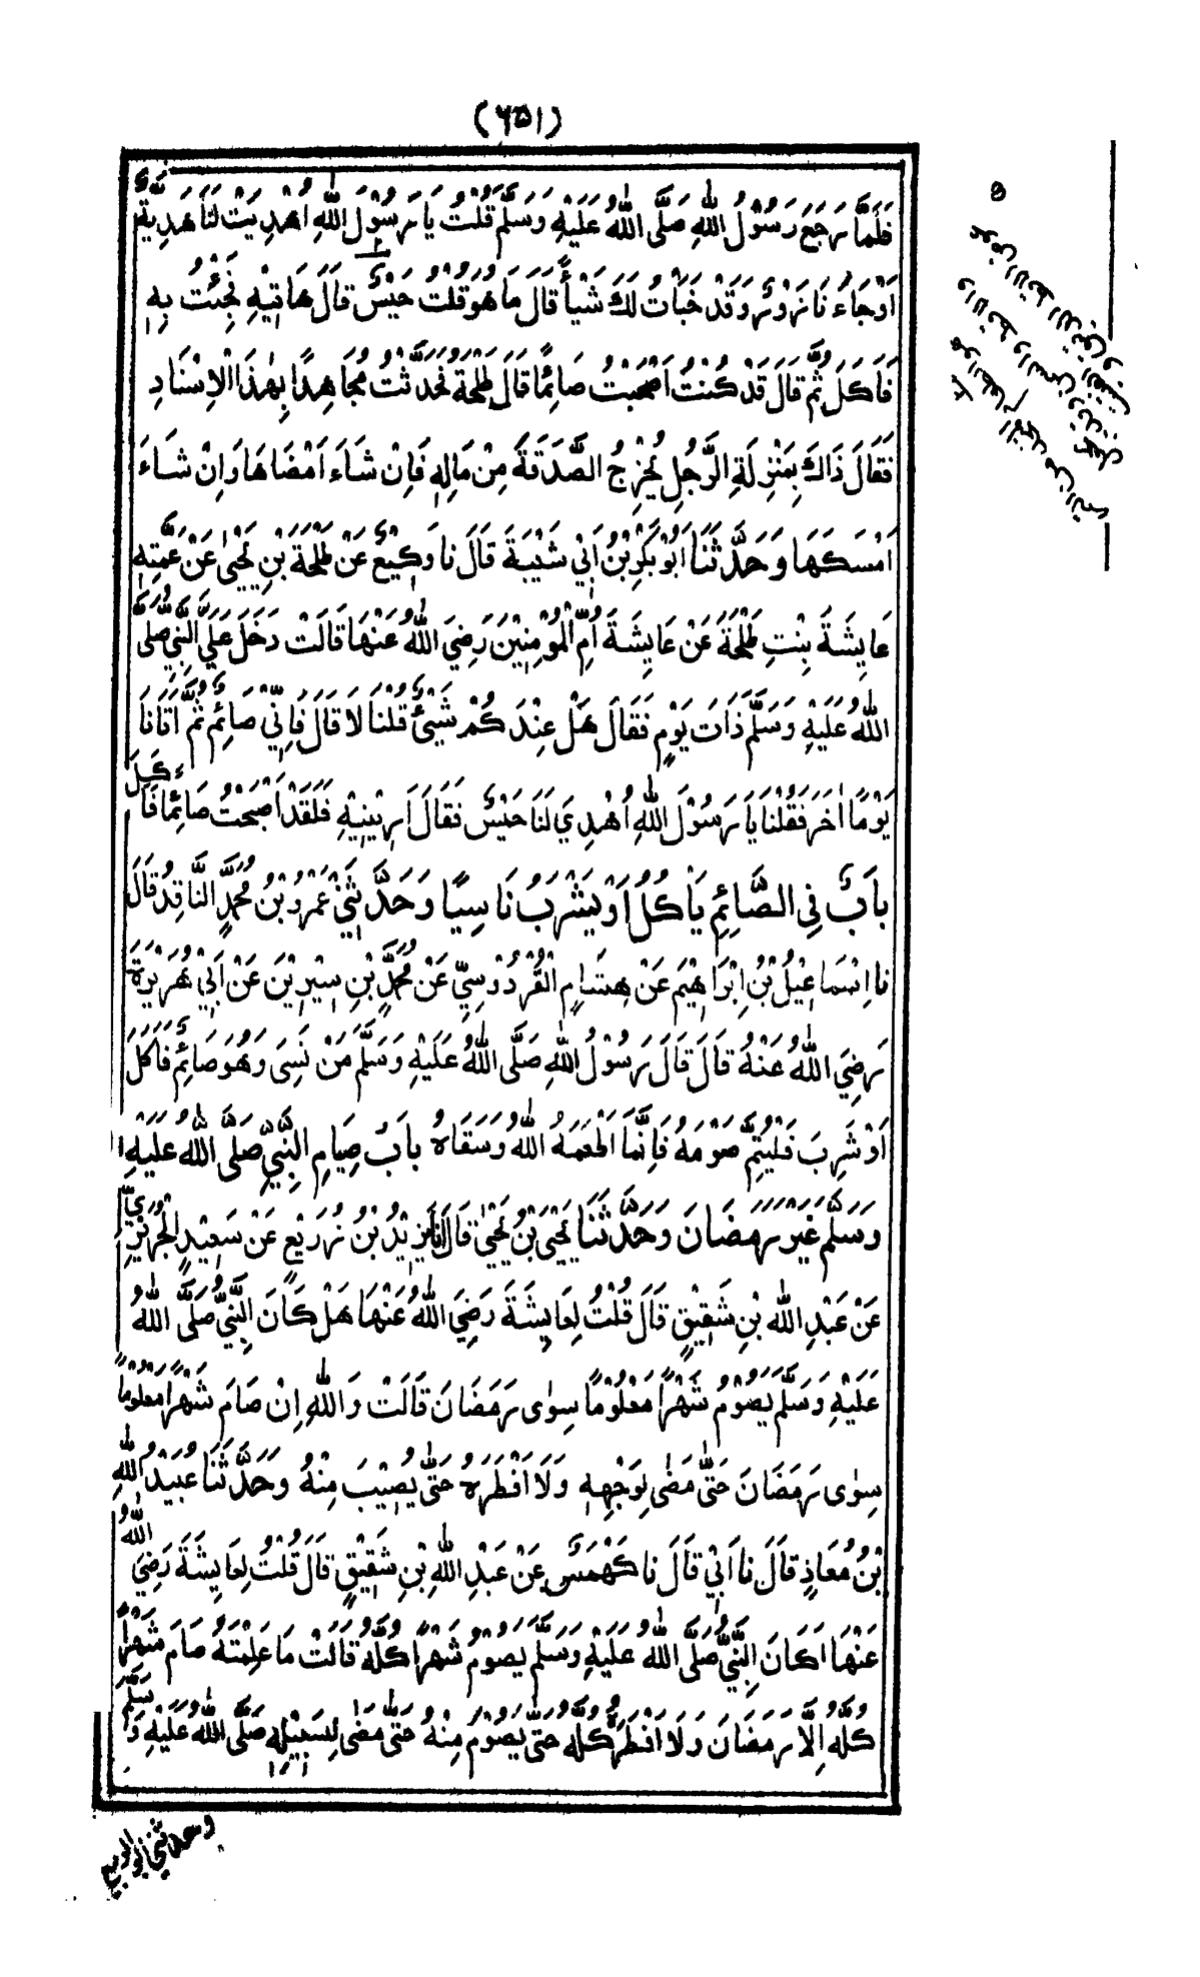 (٦٥١)
فَلَمَّا رَجَعَ رَسُوْلُ اللهِ صَلَّى اللهُ عَلَيْهِ وَسَلَّمَ قُلْتُ يَا رَسُوْلَ اللهِ اُهْدِيَتْ لَنَا هَدِيَّةٌ
اَوْجَاءَ نَا زَوْرٌ وَقَدْ خَبَأْتُ لَكَ شَيْأً قَالَ مَا هُوَ قُلْتُ حَيْسٌ قَالَ هَاتِيْهِ فَجِئْتُ بِهٖ
فَاَكَلَ ثُمَّ قَالَ قَدْ كُنْتُ اَصْبَحْتُ صَائِمًا قَالَ طَلْحَةُ فَحَدَّثْتُ مُجَاهِدًا بِهٰذَا الْاِسْنَادِ
فَقَالَ ذَاكَ بِمَنْزِلَةِ الرَّجُلِ يُخْرِجُ الصَّدَقَةَ مِنْ مَالِهٖ فَاِنْ شَاءَ اَمْضَاهَا وَاِنْ شَاءَ
اَمْسَكَهَا وَحَدَّثَنَا اَبُوْبَكْرِ بْنُ اَبِيْ شَيْبَةَ قَالَ نَا وَكِيْعٌ عَنْ طَلْحَةَ بْنِ يَحْيٰى عَنْ عَمَّتِهٖ
عَايِشَةَ بِنْتِ طَلْحَةَ عَنْ عَايِشَةَ اُمِّ الْمُؤْمِنِيْنَ رَضِيَ اللهُ عَنْهَا قَالَتْ دَخَلَ عَلَيَّ النَّبِيُّ صَلَّى
اللهُ عَلَيْهِ وَسَلَّمَ ذَاتَ يَوْمٍ فَقَالَ هَلْ عِنْدَ كُمْ شَيْئٌ قُلْنَا لَا قَالَ فَاِنِّيْ صَائِمٌ ثُمَّ اَتَانَا
يَوْمًا اٰخَرَ فَقُلْنَا يَا رَسُوْلَ اللهِ اُهْدِيَ لَنَا حَيْسٌ فَقَالَ اَرِيْنِيْهِ فَلَقَدْ اَصْبَحْتُ صَائِمًا فَاَكَلَ
بَابٌ فِي الصَّائِمِ يَاْكُلُ اَوْ يَشْرَبُ نَاسِيًا وَحَدَّثَنِيْ عَمْرُو بْنُ مُحَمَّدٍ النَّاقِدُ قَالَ
نَا اِسْمَاعِيْلُ بْنُ اِبْرَاهِيْمَ عَنْ هِشَامٍ الْقُرْدُوْسِيِّ عَنْ مُحَمَّدِ بْنِ سِيْرِيْنَ عَنْ اَبِيْ هُرَيْرَةَ
رَضِيَ اللهُ عَنْهُ قَالَ قَالَ رَسُوْلُ اللهِ صَلَّى اللهُ عَلَيْهِ وَسَلَّمَ مَنْ نَسِيَ وَهُوَ صَائِمٌ فَاَكَلَ
اَوْ شَرِبَ فَلْيُتِمَّ صَوْمَهُ فَاِنَّمَا اَطْعَمَهُ اللهُ وَسَقَاهُ بَابُ صِيَامِ النَّبِيِّ صَلَّى اللهُ عَلَيْهِ
وَسَلَّمَ غَيْرَ رَمَضَانَ وَحَدَّثَنَا يَحْيَى بْنُ يَحْيٰى قَالَ اَنَا يَزِيْدُ بْنُ زُرَيْعٍ عَنْ سَعِيْدٍ الْجُرَيْرِيِّ
عَنْ عَبْدِ اللهِ بْنِ شَقِيْقٍ قَالَ قُلْتُ لِعَايِشَةَ رَضِيَ اللهُ عَنْهَا هَلْ كَانَ النَّبِيُّ صَلَّى اللهُ
عَلَيْهِ وَسَلَّمَ يَصُوْمُ شَهْرًا مَعْلُوْمًا سِوٰى رَمَضَانَ قَالَتْ وَاللهِ اِنْ صَامَ شَهْرًا مَعْلُوْمًا
سِوٰى رَمَضَانَ حَتّٰى مَضٰى لِوَجْهِهٖ وَلَا اَفْطَرَهُ حَتّٰى يُصِيْبَ مِنْهُ وَحَدَّثَنَا عُبَيْدُ اللهِ
بْنُ مُعَاذٍ قَالَ نَا اَبِيْ قَالَ نَا كَهْمَسٌ عَنْ عَبْدِ اللهِ بْنِ شَقِيْقٍ قَالَ قُلْتُ لِعَايِشَةَ رَضِيَ اللهُ
عَنْهَا اَكَانَ النَّبِيُّ صَلَّى اللهُ عَلَيْهِ وَسَلَّمَ يَصُوْمُ شَهْرًا كُلَّهُ قَالَتْ مَا عَلِمْتُهُ صَامَ شَهْرًا
كُلَّهُ اِلَّا رَمَضَانَ وَلَا اَفْطَرَهُ كُلَّهُ حَتّٰى يَصُوْمَ مِنْهُ حَتّٰى مَضٰى لِسَبِيْلِهٖ صَلَّى اللهُ عَلَيْهِ وَسَلَّمَ
وحدثني ابو الربيع